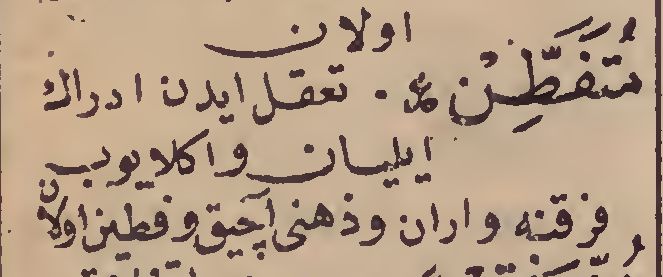 اولان
مُتَفَطِّنْ ٭ . تعقل ايدن ادراك
ايليان واكلايوب
فرقنه واران وذهنى آچيق وفطين اولان